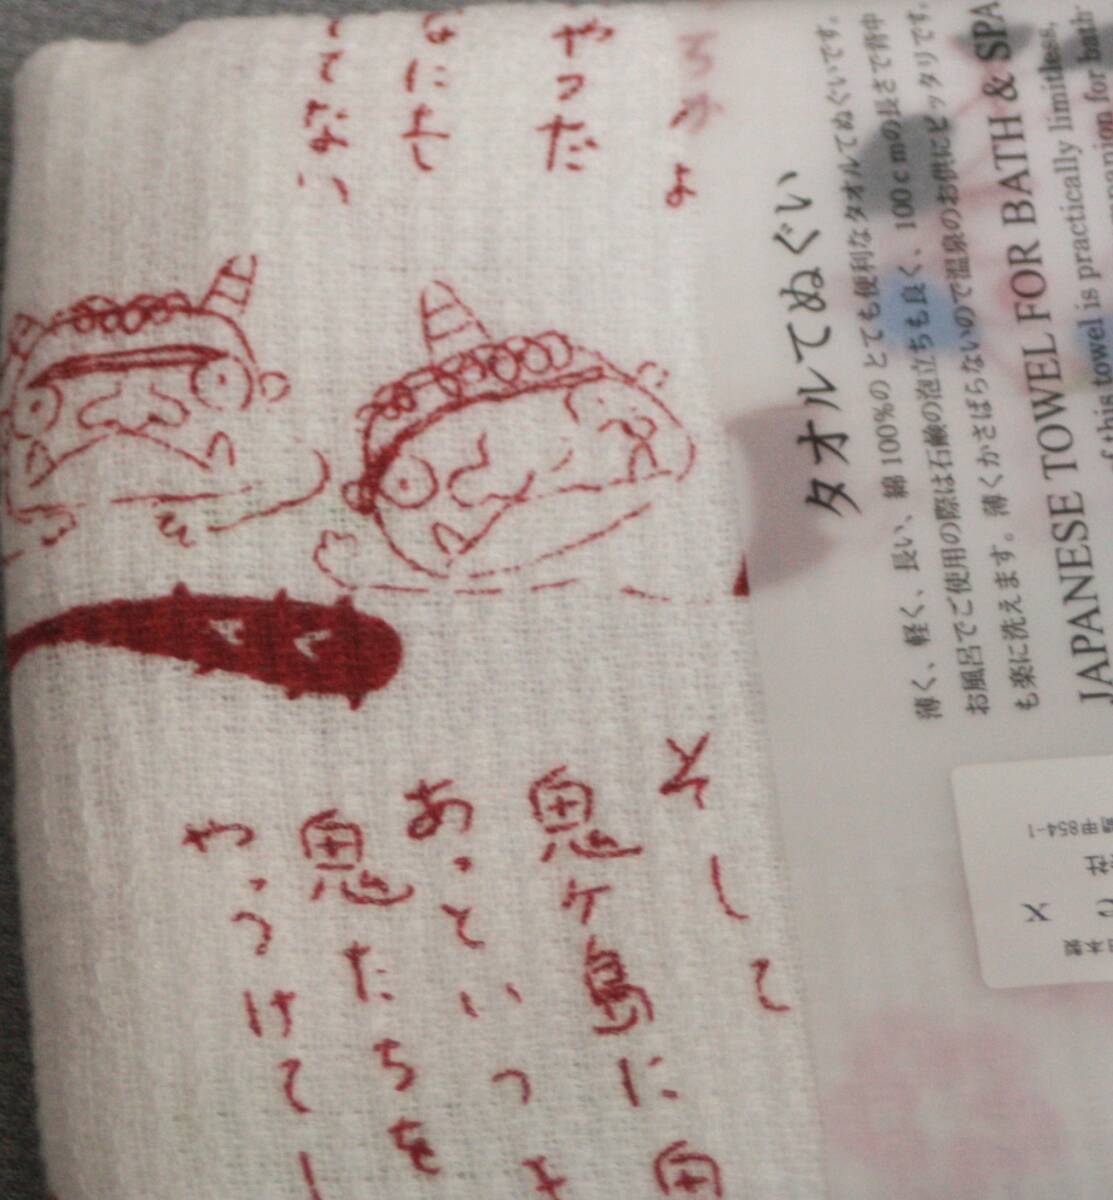 やった
そして
鬼ヶ島に
あっというま
鬼たちを
やっつけてし
タオルてぬぐい
薄く、軽く、長い、綿100%の とても便利なタオルてぬぐいです。
お風呂でご使用の際は石鹸の泡立ちも良く、100cmの長さで背中
も楽に洗えます。薄くかさばらないので温泉のお供にピッタリです。
JAPANESE TOWEL FOR BATH & SPA
of this towel is practically limitless,
companion for bath-